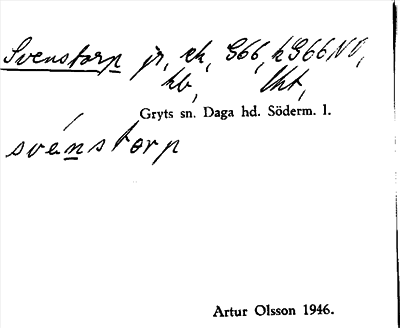 Svenstorp jr, rk, G66, hG66NO,
hb, lht,
Gryts sn. Daga hd. Söderm. l.
svénstorp
Artur Olsson 1946.